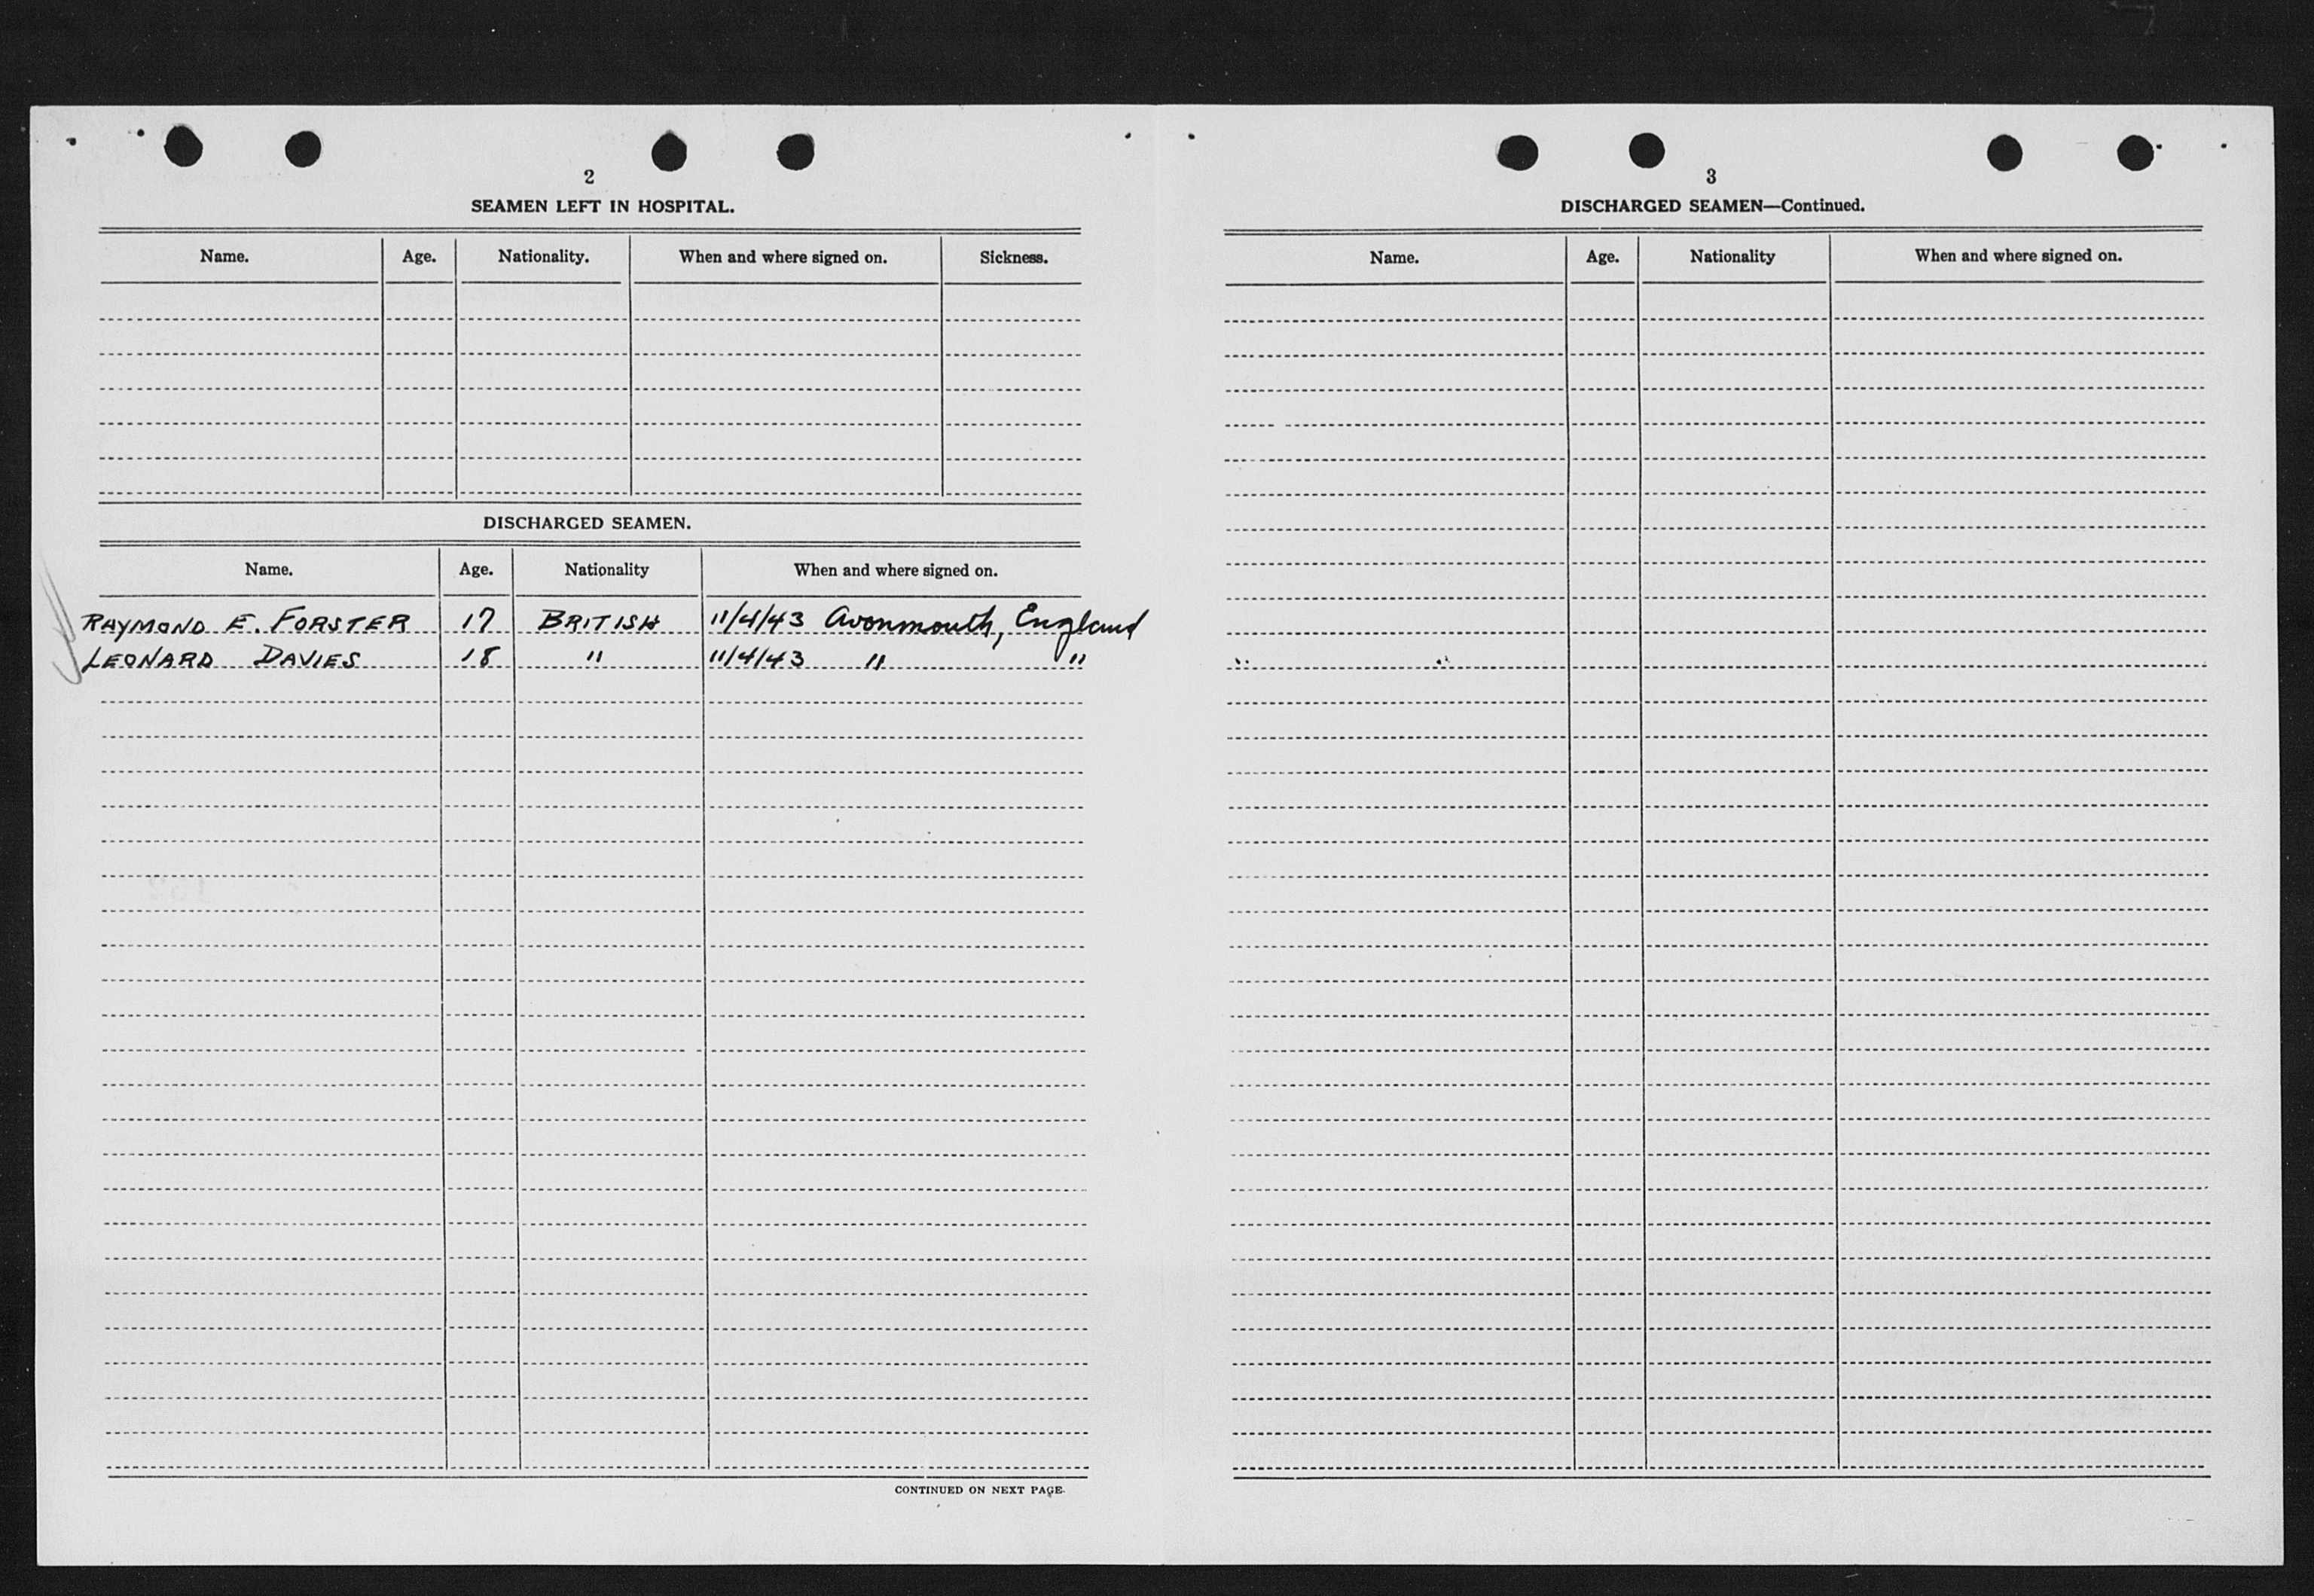 2
SEAMEN LEFT IN HOSPITAL.
Name. Age. Nationality. When and where signed on. Sickness.
DISCHARGED SEAMEN.
Name. Age. Nationality When and where signed on.
RAYMOND E. FORSTER 17 BRITISH 11/4/43 Avonmouth, England
LEONARD DAVIES 18 " 11/4/43 " "
CONTINUED ON NEXT PAGE.
3
DISCHARGED SEAMEN—Continued.
Name. Age. Nationality When and where signed on.